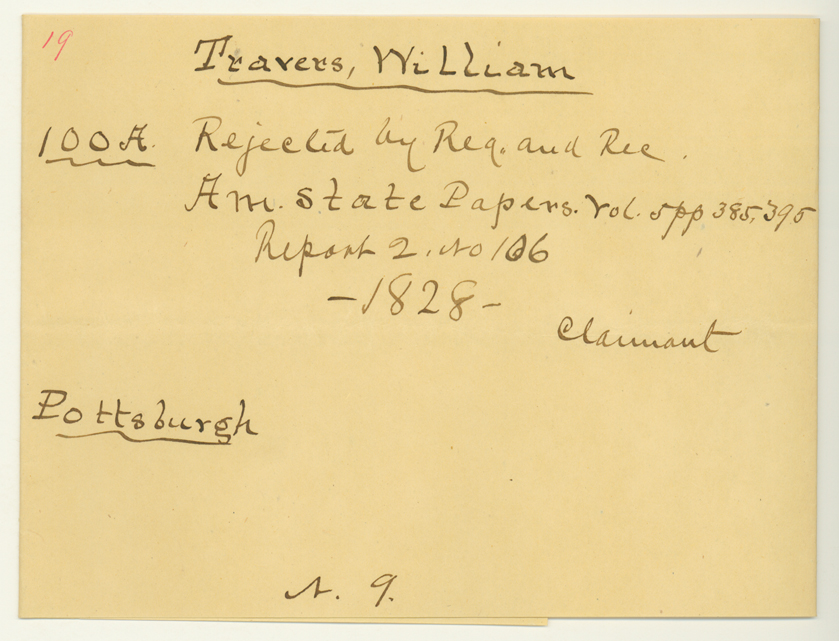 19
Travers, William
100 A. Rejected by Reg. and Rec.
Am. State Papers. Vol. 5 pp 385, 395
Report 2. No 106
- 1828 -
Claimant
Pottsburgh
N. 9.